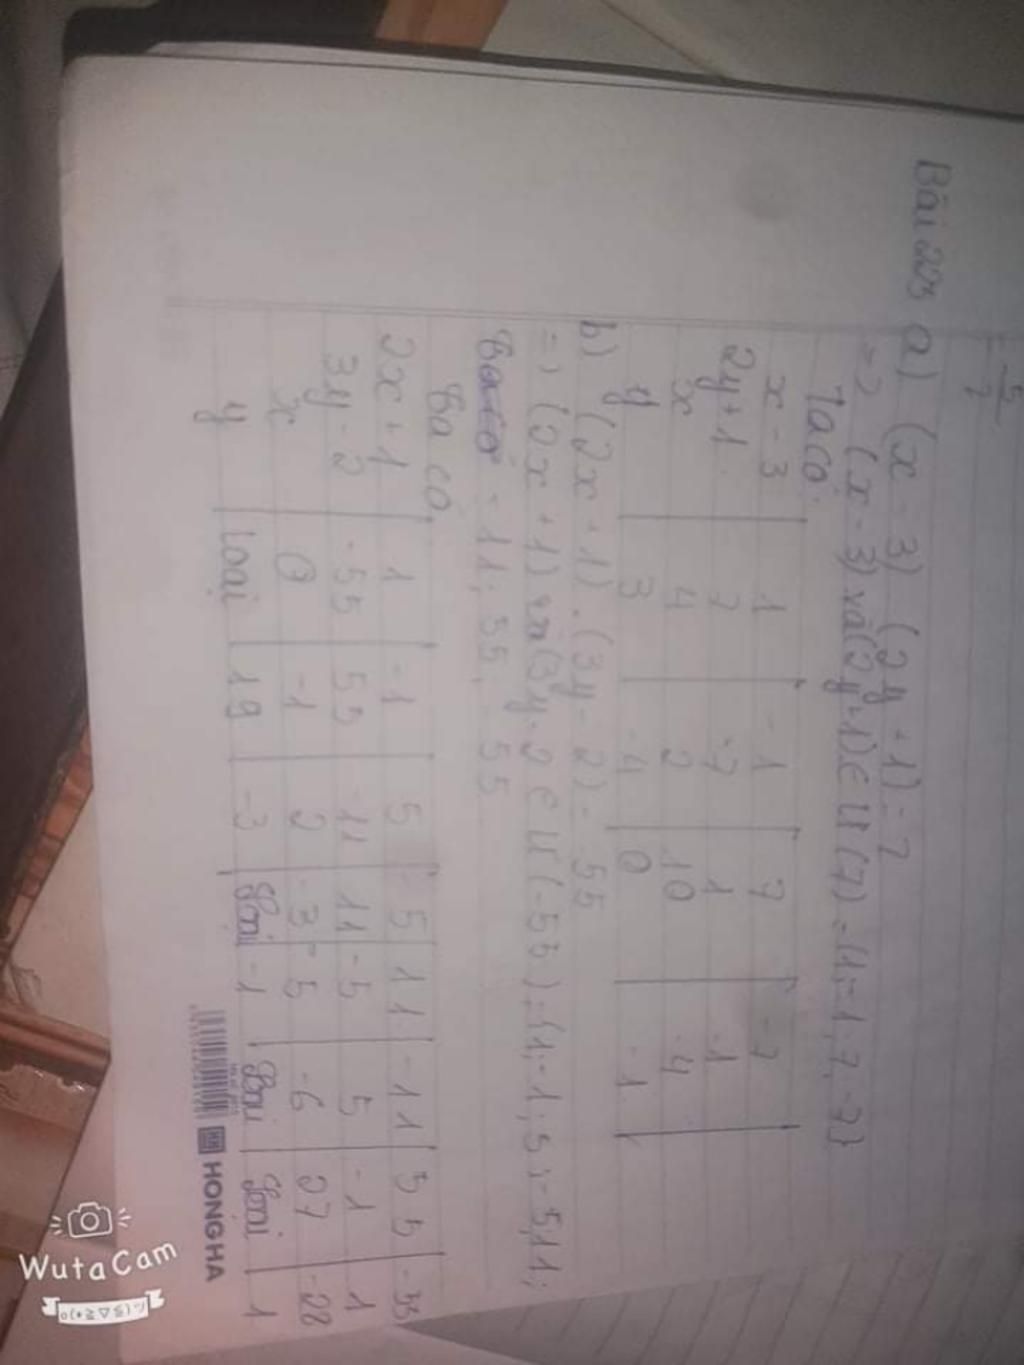 = 5/7
Bài 225 a) (x - 3) (2y + 1) = 7
=> (x - 3) và (2y+1) ∈ Ư (7) = {1; -1; 7; -7}
Ta có:
x - 3 | 1 | -1 | 7 | -7
2y+1 | 7 | -7 | 1 | -1
x | 4 | 2 | 10 | -4
y | 3 | -4 | 0 | -1
b) (2x + 1) . (3y - 2) = -55
=> (2x + 1) và (3y - 2 ∈ Ư (-55) = {1; -1; 5; -5; 11;
-11; 55; -55
Ta có
2x + 1 | 1 | -1 | 5 | -5 | 11 | -11 | 55 | -55
3y - 2 | -55 | 55 | -11 | 11 | -5 | 5 | -1 | 1
x | 0 | -1 | 2 | -3 | 5 | -6 | 27 | -28
y | loại | 19 | -3 | loại | -1 | loại | loại | 1
HONG HA
WutaCam